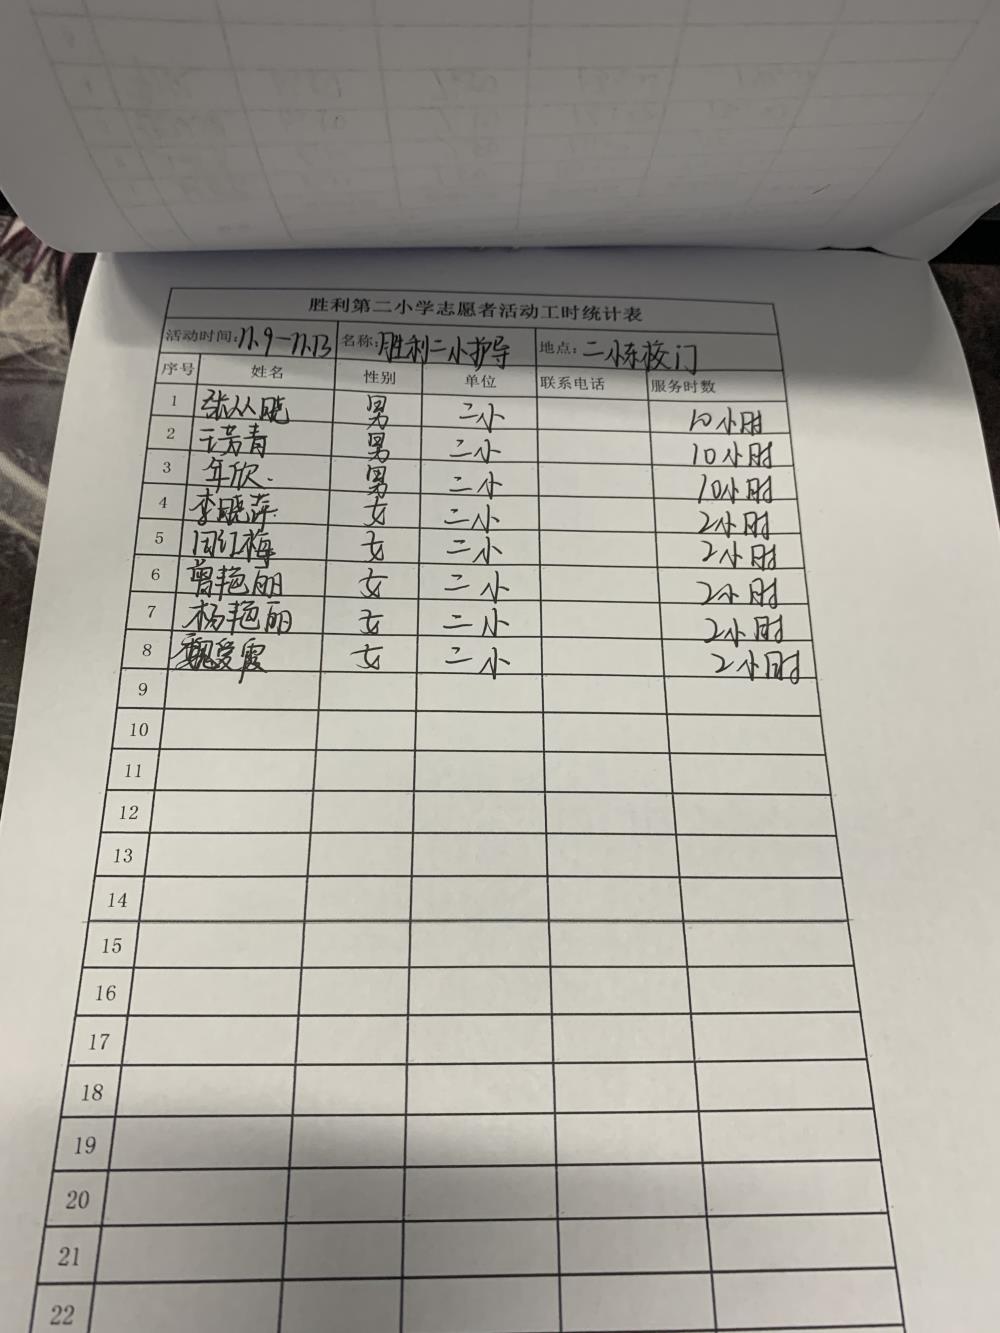 胜利第二小学志愿者活动工时统计表
活动时间:11.9-11.13 名称:胜利二小护导 地点:二小东校门
序号 姓名 性别 单位 联系电话 服务时数
1 张从晓 男 二小 10小时
2 王芳青 男 二小 10小时
3 年欣. 男 二小 10小时
4 李晓萍 女 二小 2小时
5 闫红梅 女 二小 2小时
6 曾艳丽 女 二小 2小时
7 杨艳丽 女 二小 2小时
8 魏爱霞 女 二小 2小时
9
10
11
12
13
14
15
16
17
18
19
20
21
22